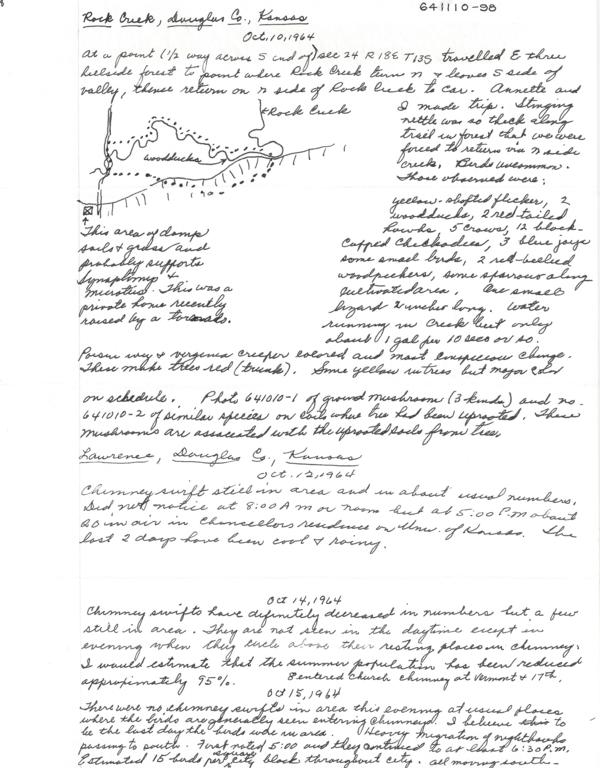 641110-98
Rock Creek, Douglas Co., Kansas
Oct. 10, 1964
At a point (1/2 way across S end of) sec 24 R 18E T13S travelled E three
hillside forest to point where Rock Creek turn n & leaves S side of
valley, thense return on n side of Rock Creek to car. Annette and
I made trip. Stinging
nettle was so thick along
trail in forest that we were
forced to return via n side
creek. Birds uncommon.
Those observed were:
Rock Creek
woodducks
yellow-shafted flicker, 2
woodducks, 2 red tailed
hawks, 5 crows, 12 black-
capped chickadees, 3 blue jays
some small birds, 2 red-bellied
woodpeckers, some sparrows along
cultivated area. One small
lizard 2 inches long. Water
running in creek but only
about 1 gal per 10 secs or so.
This area of damp
soils & grass and
probably supports
Synaptomys &
microtus. This was a
private home recently
raised by a tornado.
Poison ivy & virginia creeper colored and most conspicuous change.
These make trees red (trunk). Some yellow in trees but major color
on schedule. Photo 641010-1 of ground mushroom (3 kinds) and no.
641010-2 of similar species on soils where tree had been uprooted. These
mushrooms are associated with the uprooted soils from trees.
Lawrence, Douglas Co., Kansas
Oct. 12, 1964
Chimney swift still in area and in about usual numbers.
Did not notice at 8:00 A M or noon but at 5:00 P.M about
20 in air in Chancellors residence on Univ. of Kansas. The
last 2 days have been cool & rainy.
Oct 14, 1964
Chimney swifts have definitely decreased in numbers but a few
still in area. They are not seen in the daytime except in
evening when they circle above their resting places in chimney.
I would estimate that the summer population has been reduced
approximately 95%. 8 entered Church chimney at Vermont & 17th.
Oct 15, 1964
There were no chimney swifts in area this evening at usual places
where the birds are generally seen entering chimneys. I believe this to
be the last day the birds were in area. Heavy migration of nighthawks
passing to south. First noted 5:00 and they continued to at least 6:30 P.M.
Estimated 15 birds per square city block throughout city. all moving south-